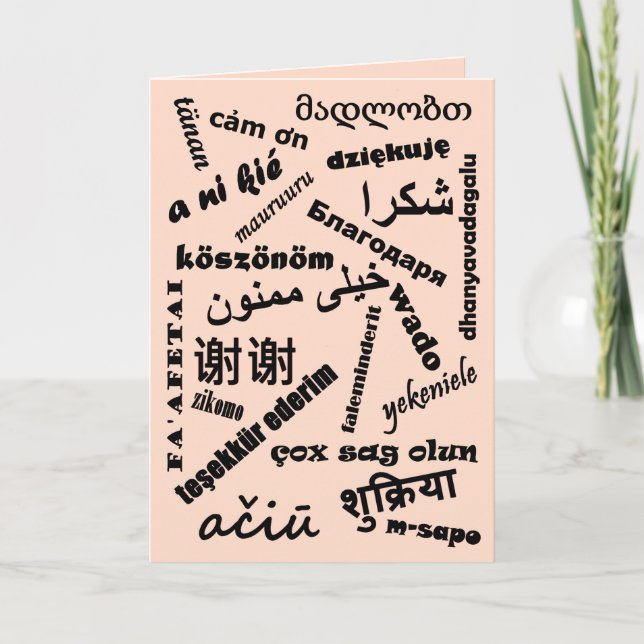 მადლობთ
tänan
cảm ơn
dziękuję
a ni kié
mauruuru
شكرا
dhanyavadagalu
Благодаря
köszönöm
خیلی ممنون
wado
FA'AFETAI
谢谢
faleminderit
zikomo
yekeniele
teşekkür ederim
çox sag olun
शुक्रिया
ačiū
m-sapo